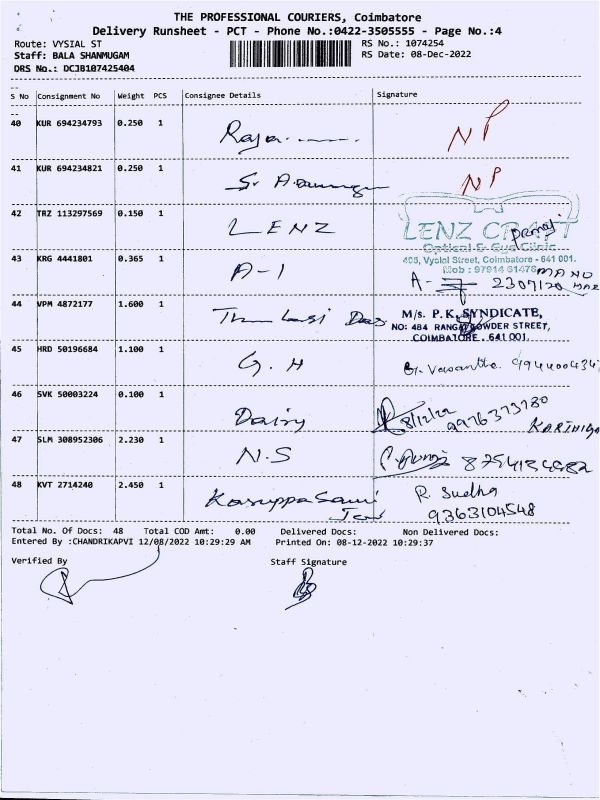 THE PROFESSIONAL COURIERS, Coimbatore
Delivery Runsheet - PCT - Phone No.:0422-3505555 - Page No.:4
Route: VYSIAL ST RS No.: 1074254
Staff: BALA SHANMUGAM RS Date: 08-Dec-2022
DRS No.: DCJB107425404
S No Consignment No Weight PCS Consignee Details Signature
40 KUR 694234793 0.250 1 Raja NP
41 KUR 694234821 0.250 1 NP
42 TRZ 113297569 0.150 1 LENZ
LENZ CRAFT
Optical & Eye Clinic
406, Vysial Street, Coimbatore - 641 001.
Mob : 97914 61476
43 KRG 4441801 0.365 1 A-1
44 VPM 4872177 1.600 1 Das
M/s. P.K. SYNDICATE,
NO: 484 RANGAI GOWDER STREET,
COIMBATORE . 641 001.
45 HRD 50196684 1.100 1 G. H
46 SVK 50003224 0.100 1 Dairy 8/12/22 9976373780
KARTHIGA
47 SLM 308952306 2.230 1 N.S
48 KVT 2714240 2.450 1 Karuppasami R. Sudha
9363104548
Total No. Of Docs: 48 Total COD Amt: 0.00 Delivered Docs: Non Delivered Docs:
Entered By :CHANDRIKAPVI 12/08/2022 10:29:29 AM Printed On: 08-12-2022 10:29:37
Verified By Staff Signature